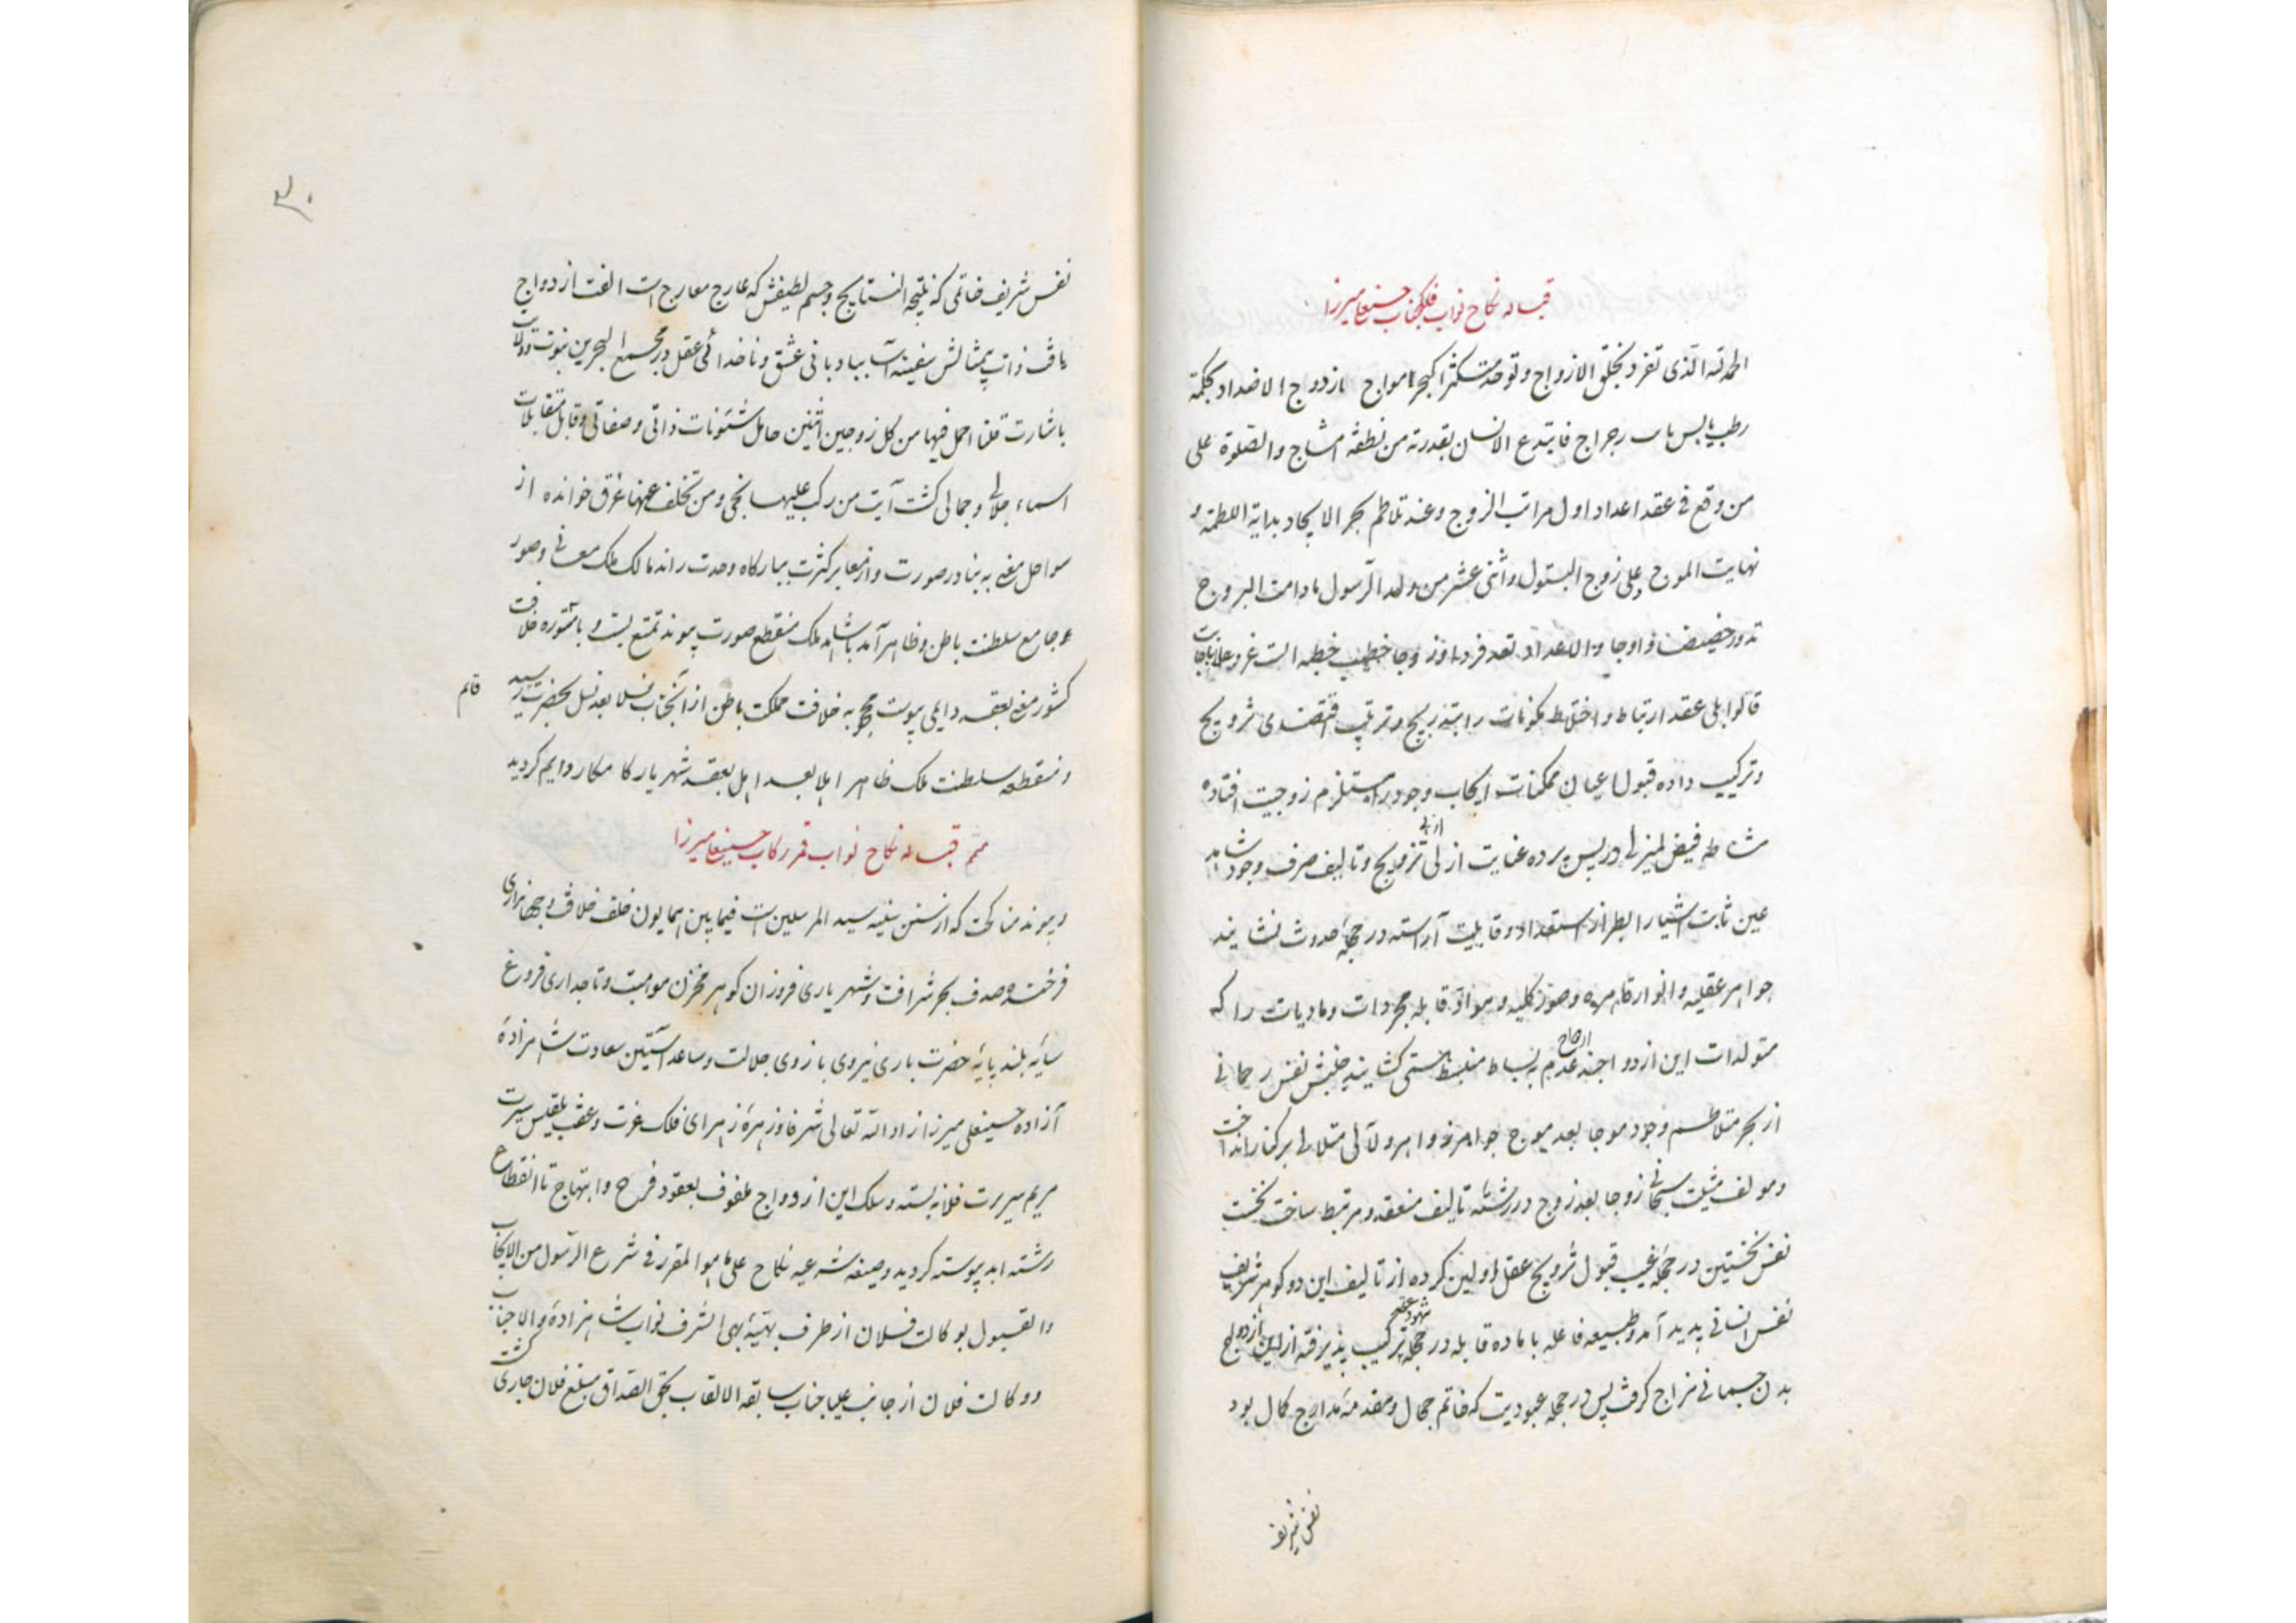 قباله نکاح نواب فلک‌جناب حسنعلی میرزا
الحمد لله الذی تفرد بخلق الازواج و توحد متکثرا کبحر امواج بازدواج الاضداد بحکمة
رطب یابس باب رجراج فابتدع الانسان بقدرته من نطفة امشاج والصلوة علی
من وقع فی عقد اعداد اول مراتب الزوج وعند تلاطم بحر الایجاد بدایة اللطمة و
نهایت الموج و علی زوج البتول و اثنی عشر من ولد الرسول مادامت البروج
تدور حضیضا و اوجا و الاعداد تعد فردا و زوجا خطیب خطبه الست
قالوا بلی عقد ارتباط و اختلاط مکونات را بتدریج و ترتیب مقتضای ترویج
و ترکیب داده قبول اعیان ممکنات ایجاب وجود را مستلزم زوجیت افتاده
مشاطه فیض لم‌یزلی در پس پرده عنایت ازلی از پی تزویج و تالیف صرف وجود شاهد
عین ثابت اشیا را بطراز استعداد و قابلیت آراسته در حجله حدوث نشانید
جواهر عقلیه و انوار قاهره و صور کلیه و مواد قابله مجردات و مادیات را که
متولدات این ازدواجند از رحم عدم به بساط منبسط هستی کشانید جنبش نفس رحمانی
از بحر متلاطم وجود موجا بعد موج جواهر زواهر و لآلی متلالی بر کنار انداخت
و مولف مشیت سبحانی زوجا بعد زوج در رشته تالیف منعقد و مرتبط ساخت نخست
نفس نخستین در حجله غیب قبول ترویج عقل اولین کرده از تالیف این دو گوهر شریف
نفس انسانی پدید آمد و طبیعه فاعله با ماده قابله در حجله شهود ترکیب پذیرفته از این ازدواج
بدن جسمانی مزاج گرفت پس در حجله عبودیت که خاتم جمال و مقدمه مدارج کمال بود
نفس شریف
نفس شریف خاتمی که نتیجه النتایج و جسم لطیفش که عارج معارج است الفت ازدواج
یافت ذات بیمثالش سفینه آسا ببادبانی عشق و ناخدائی عقل در مجمع البحرین نبوت و ولایت
باشارت قلنا احمل فیها من کل زوجین اثنین حامل شئونات ذاتی و صفاتی و قابل متقابلات
اسماء جلالی و جمالی گشت آیت من رکب علیها نجی و من تخلف عنها غرق خوانده از
سواحل معنی به بنادر صورت و از معابر کثرت ببارگاه وحدت راند مالک ملک معانی و صور
و جامع سلطنت باطن و ظاهر آمد با شاهد ملک منقطع صورت پیوند تمتع بست و با مستوره خلافت
کشور معنی بعقد دایمی پیوست محجوبه خلافت مملکت باطن از آنجناب نسلا بعد نسل بحضرت قائم رسید
و منقطعه سلطنت ملک ظاهر اهلا بعد اهل بعقد شهریار کامکار دایم گردید
متمم قباله نکاح نواب قمر رکاب حسینعلی میرزا
و پیوند مناکحت که از سنن سنیه سید المرسلین است فیمابین همایون خلف خلافت و جهانداری
فرخنده صدف بحر شرافت و شهریاری فروزان گوهر مخزن موهبت و تاجداری فروغ
سایه بلند پایه حضرت باری نیروی بازوی جلالت و ساعد آستین سعادت شاهزاده
آزاده حسینعلی میرزا زاد الله تعالی شرفا و زهره زهرای فلک عزت و عفت بلقیس سیرت
مریم سریرت فلانه بسته و سلک این ازدواج ملفوف بعقود فرح و ابتهاج تا انقطاع
رشته ابد پیوسته گردید و صیغه شرعیه نکاح علی ما هو المقرر فی شرع الرسول من الایجاب
و القبول بوکالت فلان از طرف بهیة بهی الشرف نواب شاهزاده والاجناب
و وکالت فلان از جانب علیا جناب سابقة الالقاب بحق الصداق مبلغ فلان جاری گشت